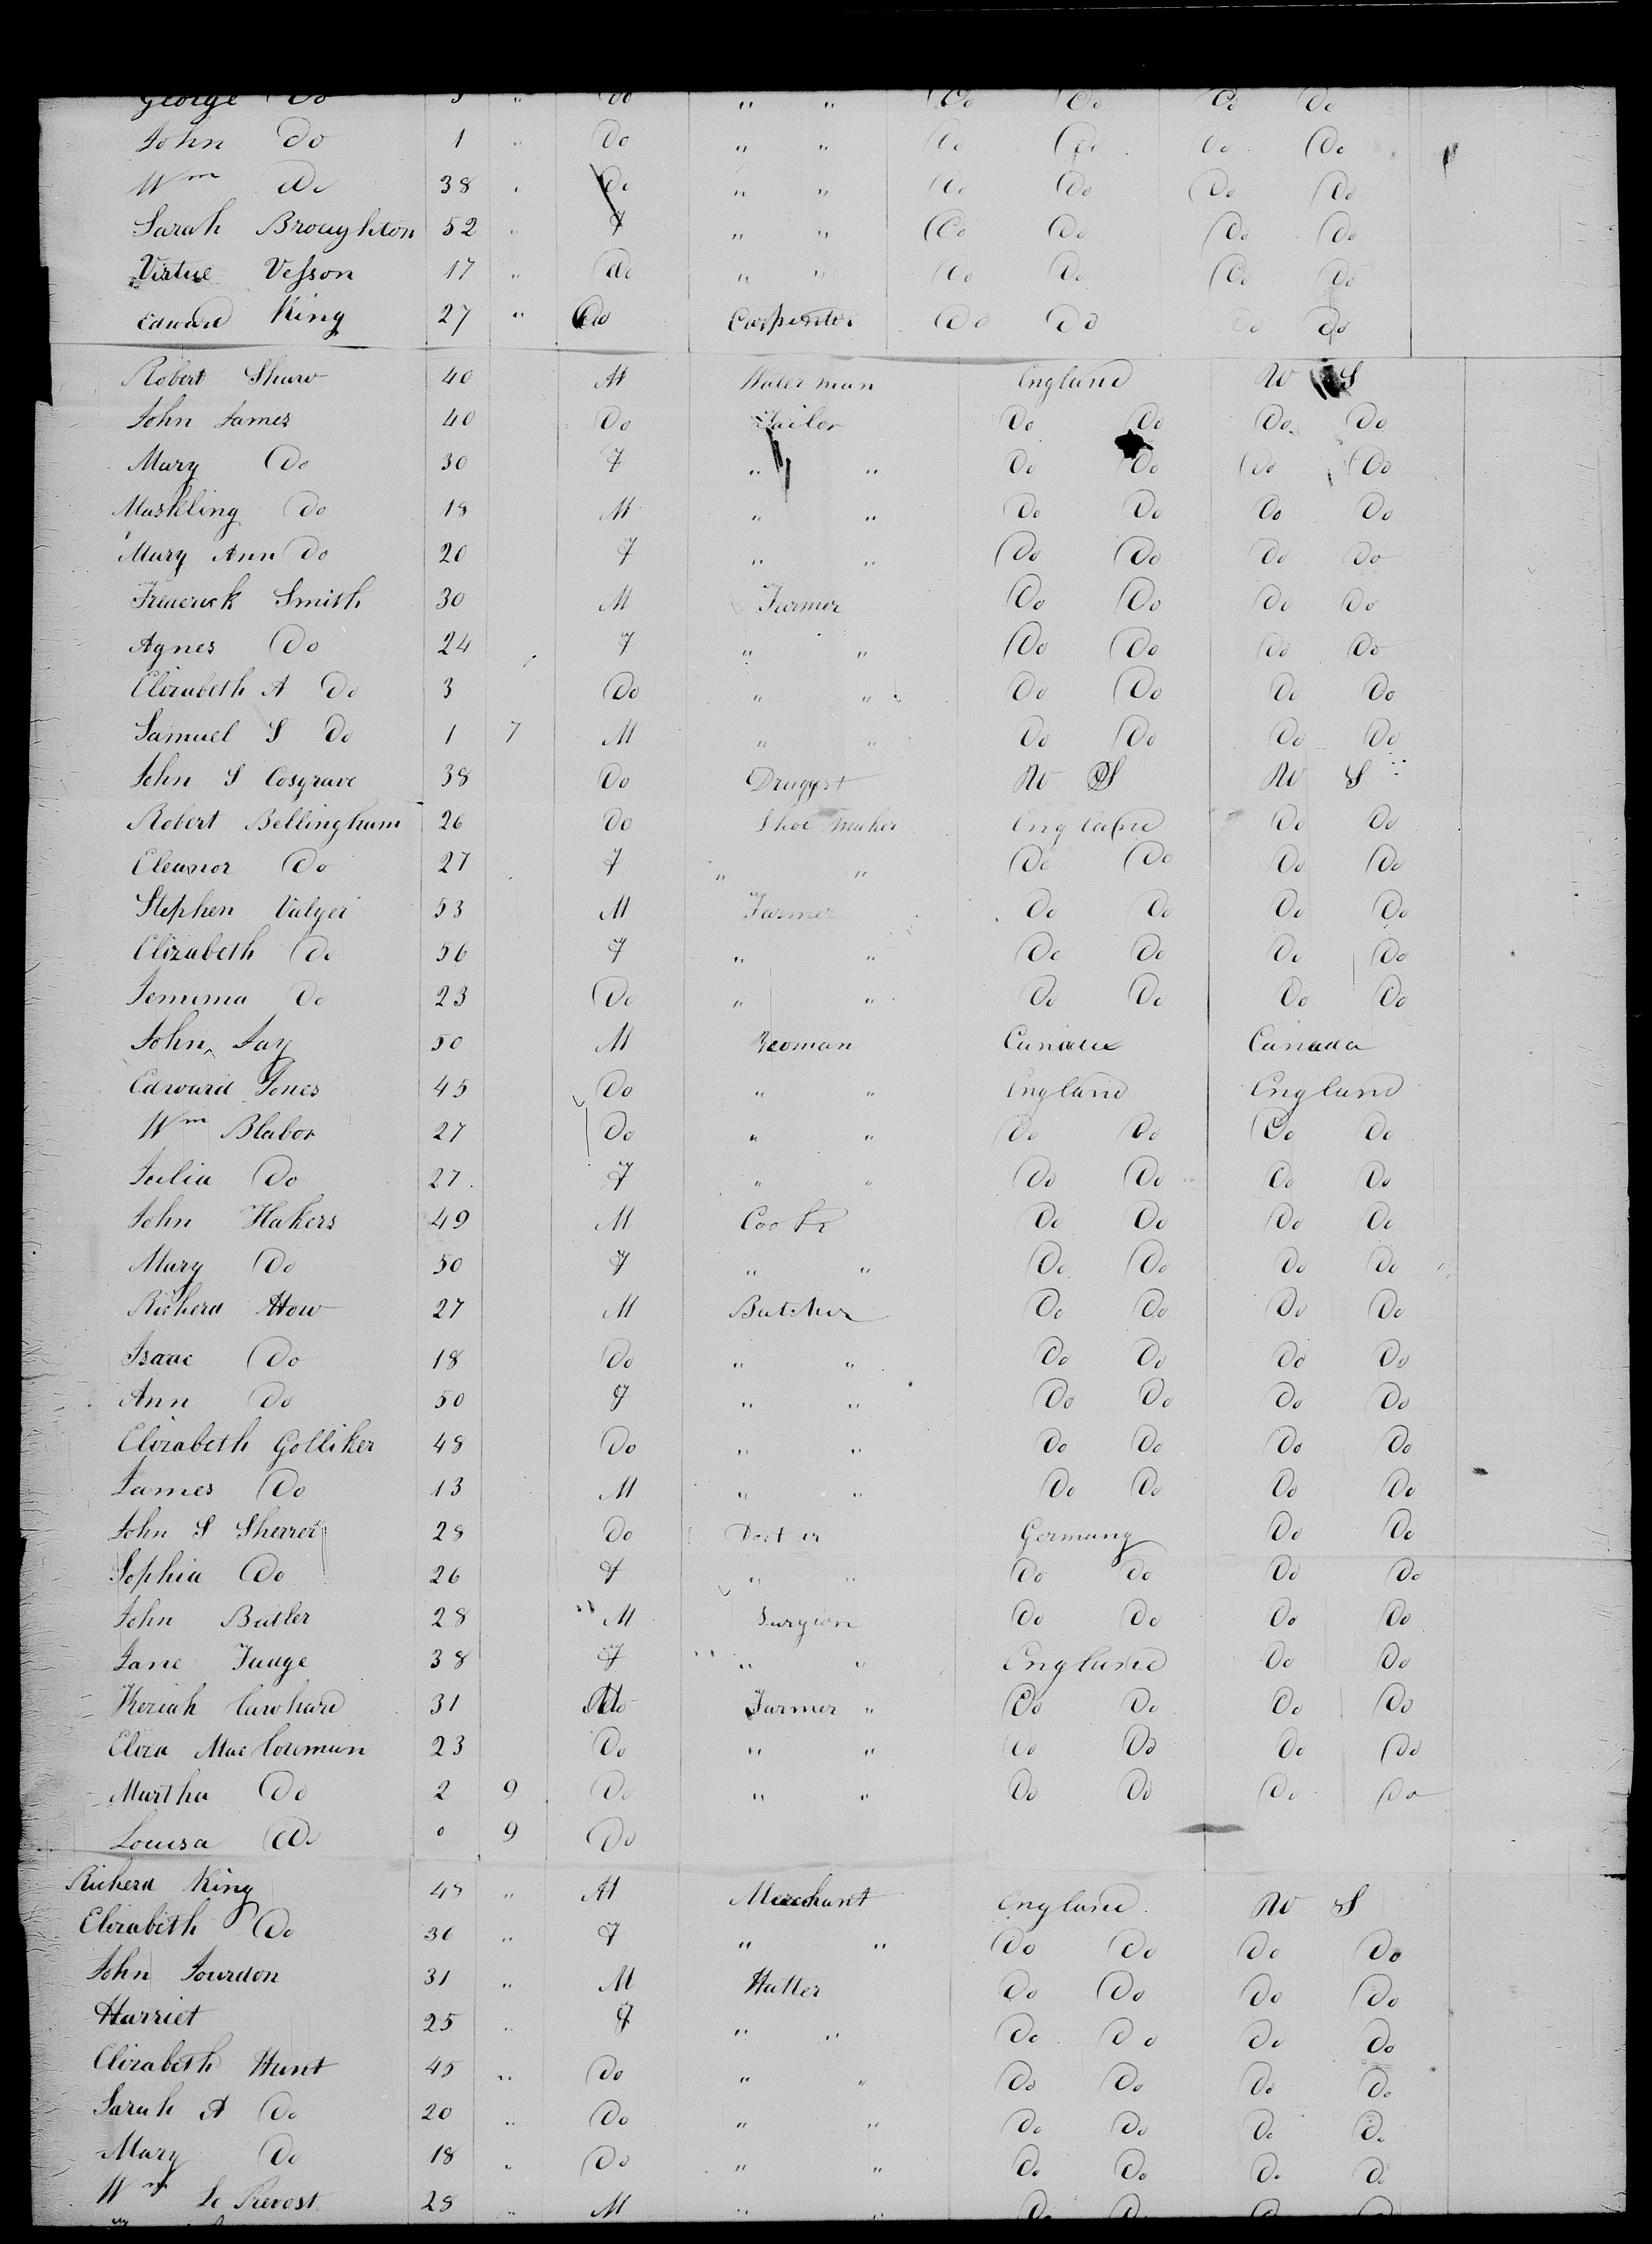 George Do 3 " Do " " Do Do Do Do
John Do 1 " Do " " Do Do Do Do
Wm Do 38 " Do " " Do Do Do Do
Sarah Broughton 52 " F " " Do Do Do Do
Virtue Vesson 17 " do " " Do Do Do Do
Edward King 27 " Do Carpenter Do Do Do Do
Robert Shaw 40 M Water man England W S
John James 40 Do Tailor Do Do Do Do
Mary Do 30 F " " Do Do Do Do
Maskling Do 18 M " " Do Do Do Do
Mary Ann Do 20 F " " Do Do Do Do
Frederick Smith 30 M Farmer Do Do Do Do
Agnes Do 24 F " " Do Do Do Do
Elizabeth A Do 3 Do " " Do Do Do Do
Samuel S Do 1 7 M " " Do Do Do Do
John S Cosgrave 38 Do Druggst W S W S
Robert Bellingham 26 Do Shoe maker England Do Do
Eleanor Do 27 F " " Do Do Do Do
Stephen 53 M Farmer Do Do Do Do
Elizabeth Do 56 F " " Do Do Do Do
Jemima Do 23 Do " " Do Do Do Do
John Jay 50 M Yeoman Canada Canada
Edward Jones 45 Do " " England England
Wm Blabor 27 Do " " Do Do Do Do
Julia Do 27 F " " Do Do Do Do
John Hakers 49 M Cook Do Do Do Do
Mary Do 50 F " " Do Do Do Do
Richerd How 27 M Butcher Do Do Do Do
Isaac Do 18 Do " " Do Do Do Do
Ann Do 50 F " " Do Do Do Do
Elizabeth Golliker 48 Do " " Do Do Do Do
James Do 13 M " " Do Do Do Do
John S Sherrer 28 Do Doct er Germany Do Do
Sophia Do 26 F " " Do Do Do Do
John Butler 28 " M Surgion Do Do Do Do
Jane 38 F " " England Do Do
Keziah 31 Do Farmer " Do Do Do Do
Eliza Mac 23 Do " " Do Do Do Do
Martha Do 2 9 Do " " Do Do Do Do
Louisa Do 0 9 Do
Richerd King 48 " M Merchant England W S
Elizabeth Do 36 " F " " Do Do Do Do
John Jourdon 31 " M Hatter Do Do Do Do
Harriet 25 " F " " Do Do Do Do
Elizabeth Hunt 45 " Do " " Do Do Do Do
Sarah A Do 20 " Do " " Do Do Do Do
Mary Do 18 " Do " " Do Do Do Do
Wm Le Prevost 28 " M " " Do Do Do Do